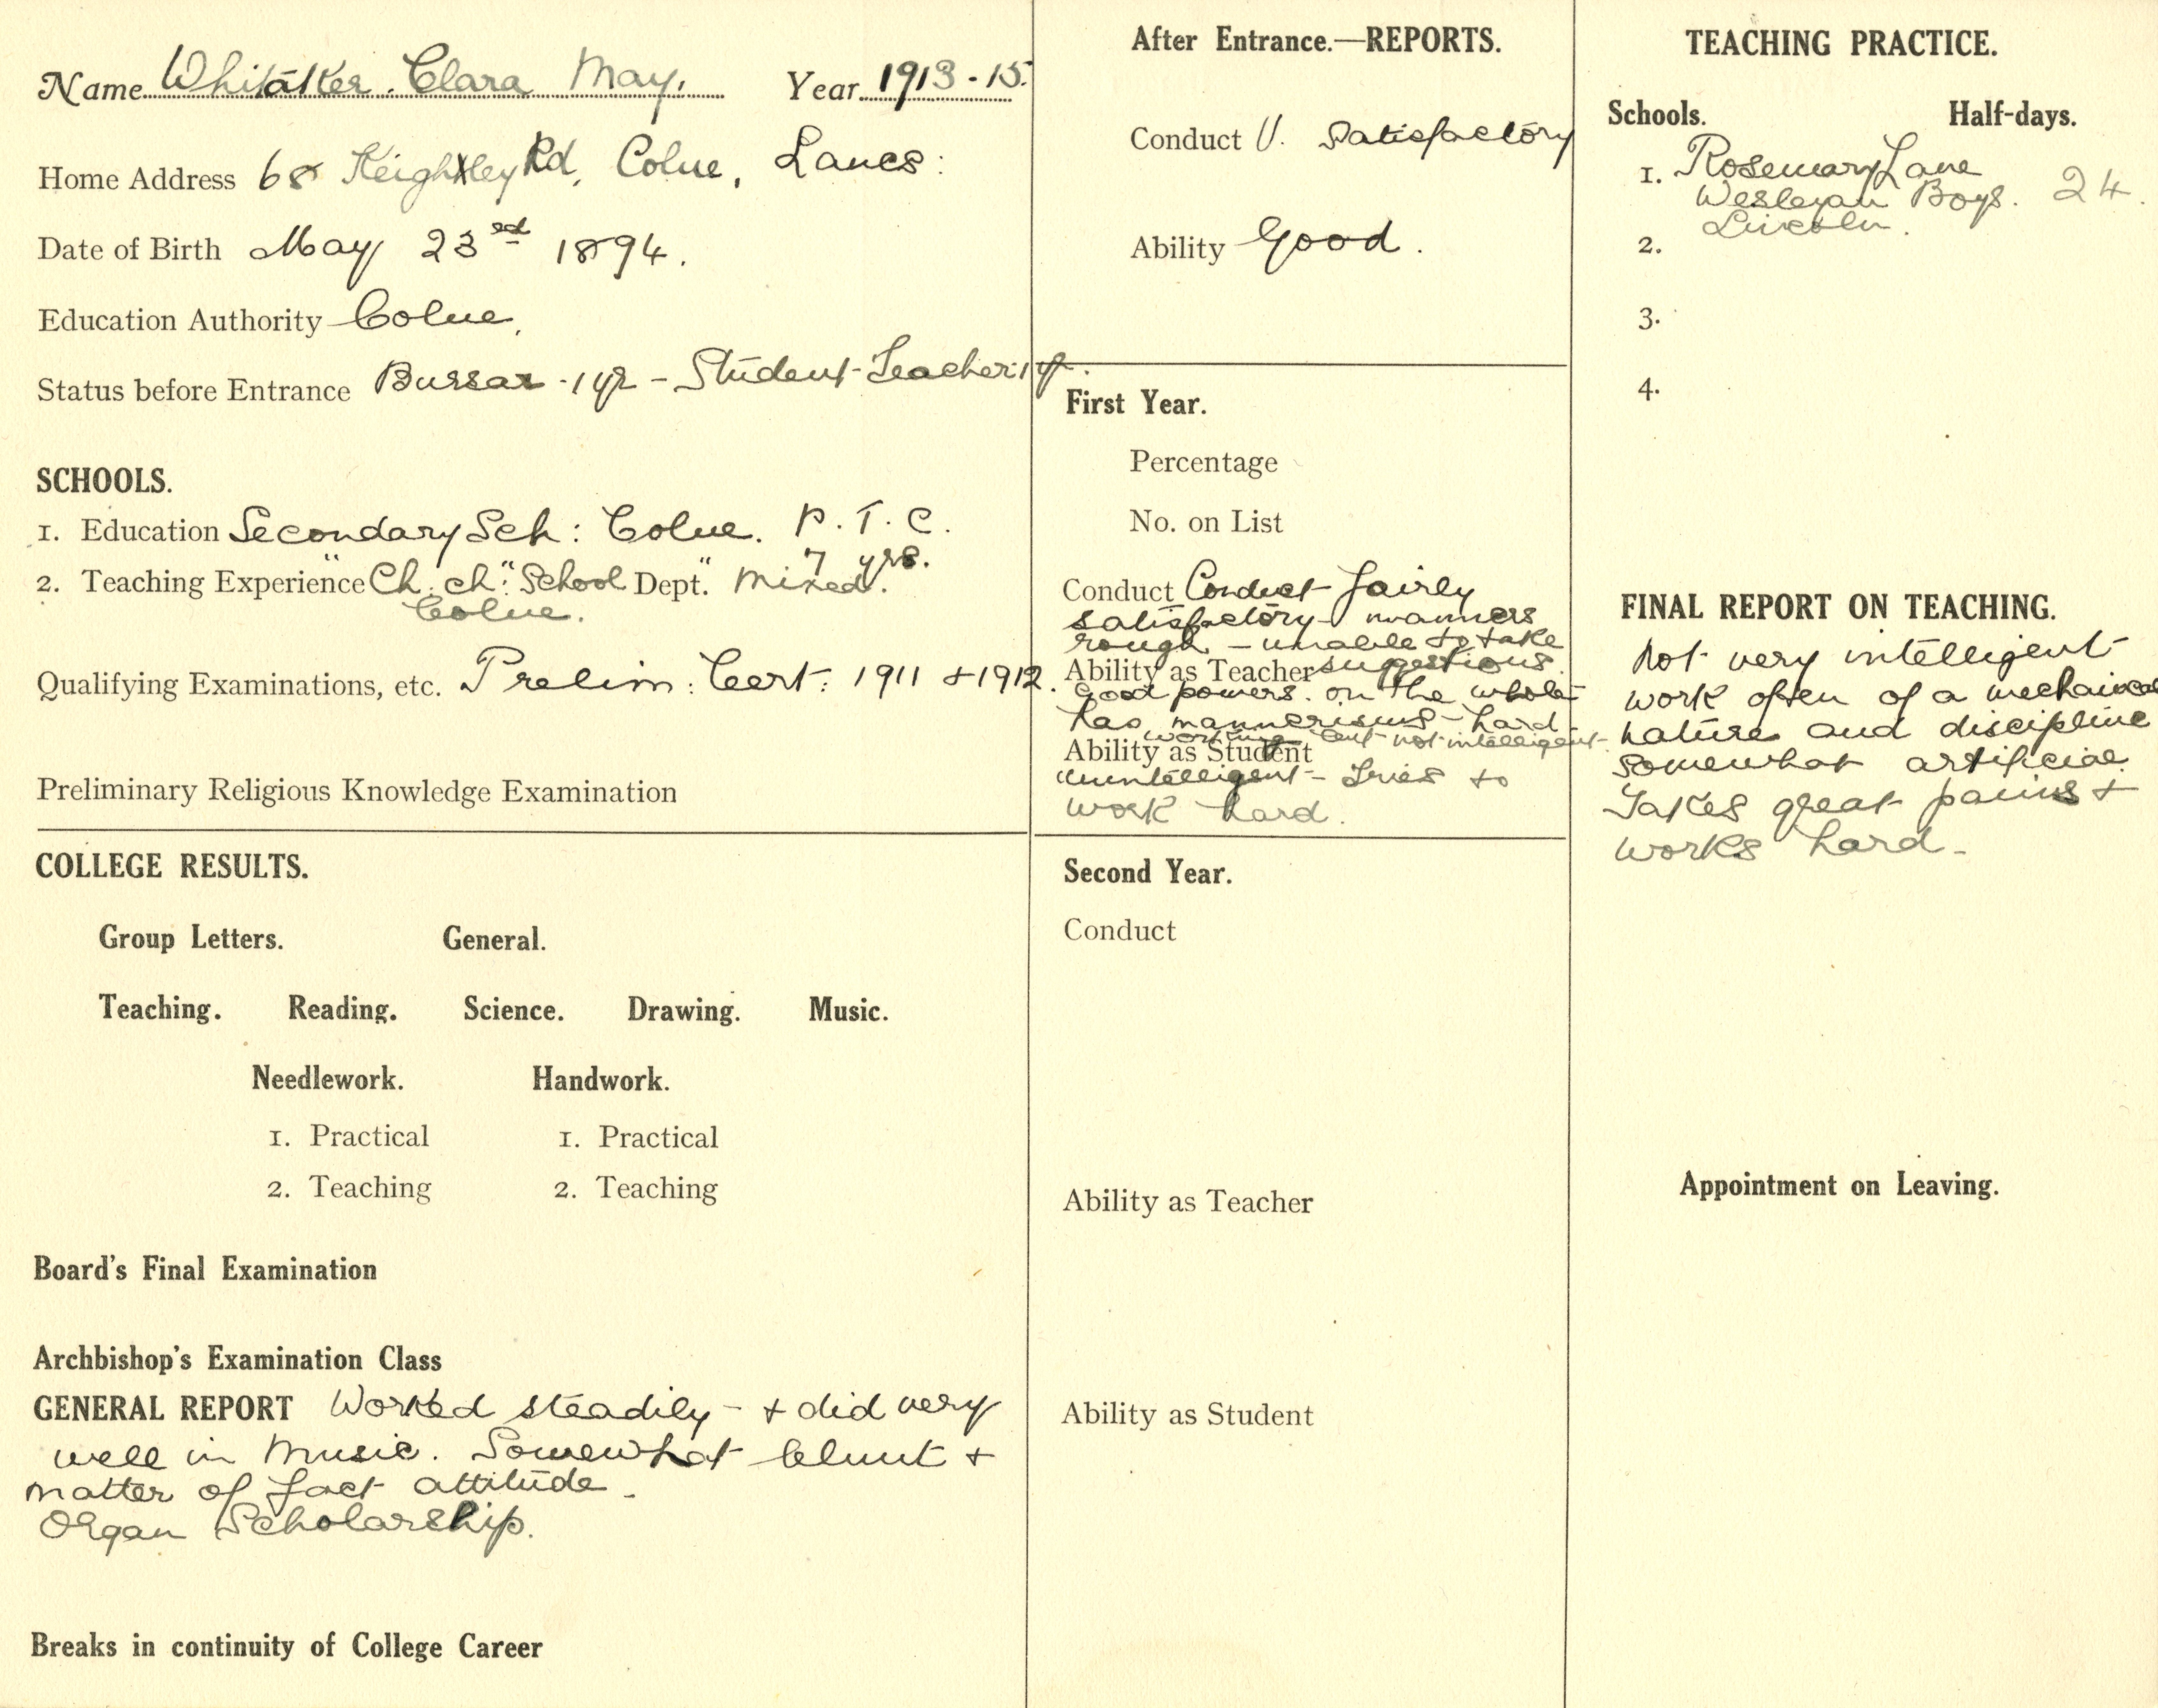 Name Whitaker. Clara May. Year 1913-15.
Home Address 68 Keighley Rd, Colne, Lancs:
Date of Birth May 23rd 1894.
Education Authority Colne.
Status before Entrance Bursar - 1 yr - Student-Teacher: 1 yr.
SCHOOLS.
1. Education Secondary Sch: Colne. P.T.C.
7 yrs.
2. Teaching Experience "Ch: ch": School Dept. "Mixed".
Colne.
Qualifying Examinations, etc. Prelim: Cert: 1911 + 1912.
Preliminary Religious Knowledge Examination
COLLEGE RESULTS.
Group Letters. General.
Teaching. Reading. Science. Drawing. Music.
Needlework. Handwork.
1. Practical 1. Practical
2. Teaching 2. Teaching
Board's Final Examination
Archbishop's Examination Class
GENERAL REPORT Worked steadily - + did very
well in Music. Somewhat blunt +
matter of fact attitude -
Organ Scholarship.
Breaks in continuity of College Career
After Entrance.—REPORTS.
Conduct V. Satisfactory
Ability Good.
First Year.
Percentage
No. on List
Conduct Conduct fairly
satisfactory - manners
rough - unable to take
suggestions.
Ability as Teacher
Good powers. on the whole
has mannerisms - hard
working but not intelligent.
Ability as Student
Unintelligent - Tries to
work hard.
Second Year.
Conduct
Ability as Teacher
Ability as Student
TEACHING PRACTICE.
Schools. Half-days.
1. Rosemary Lane
Wesleyan Boys. 24.
Lincoln.
2.
3.
4.
FINAL REPORT ON TEACHING.
Not very intelligent
work often of a mechanical
nature and discipline
somewhat artificial.
Takes great pains +
works hard -
Appointment on Leaving.